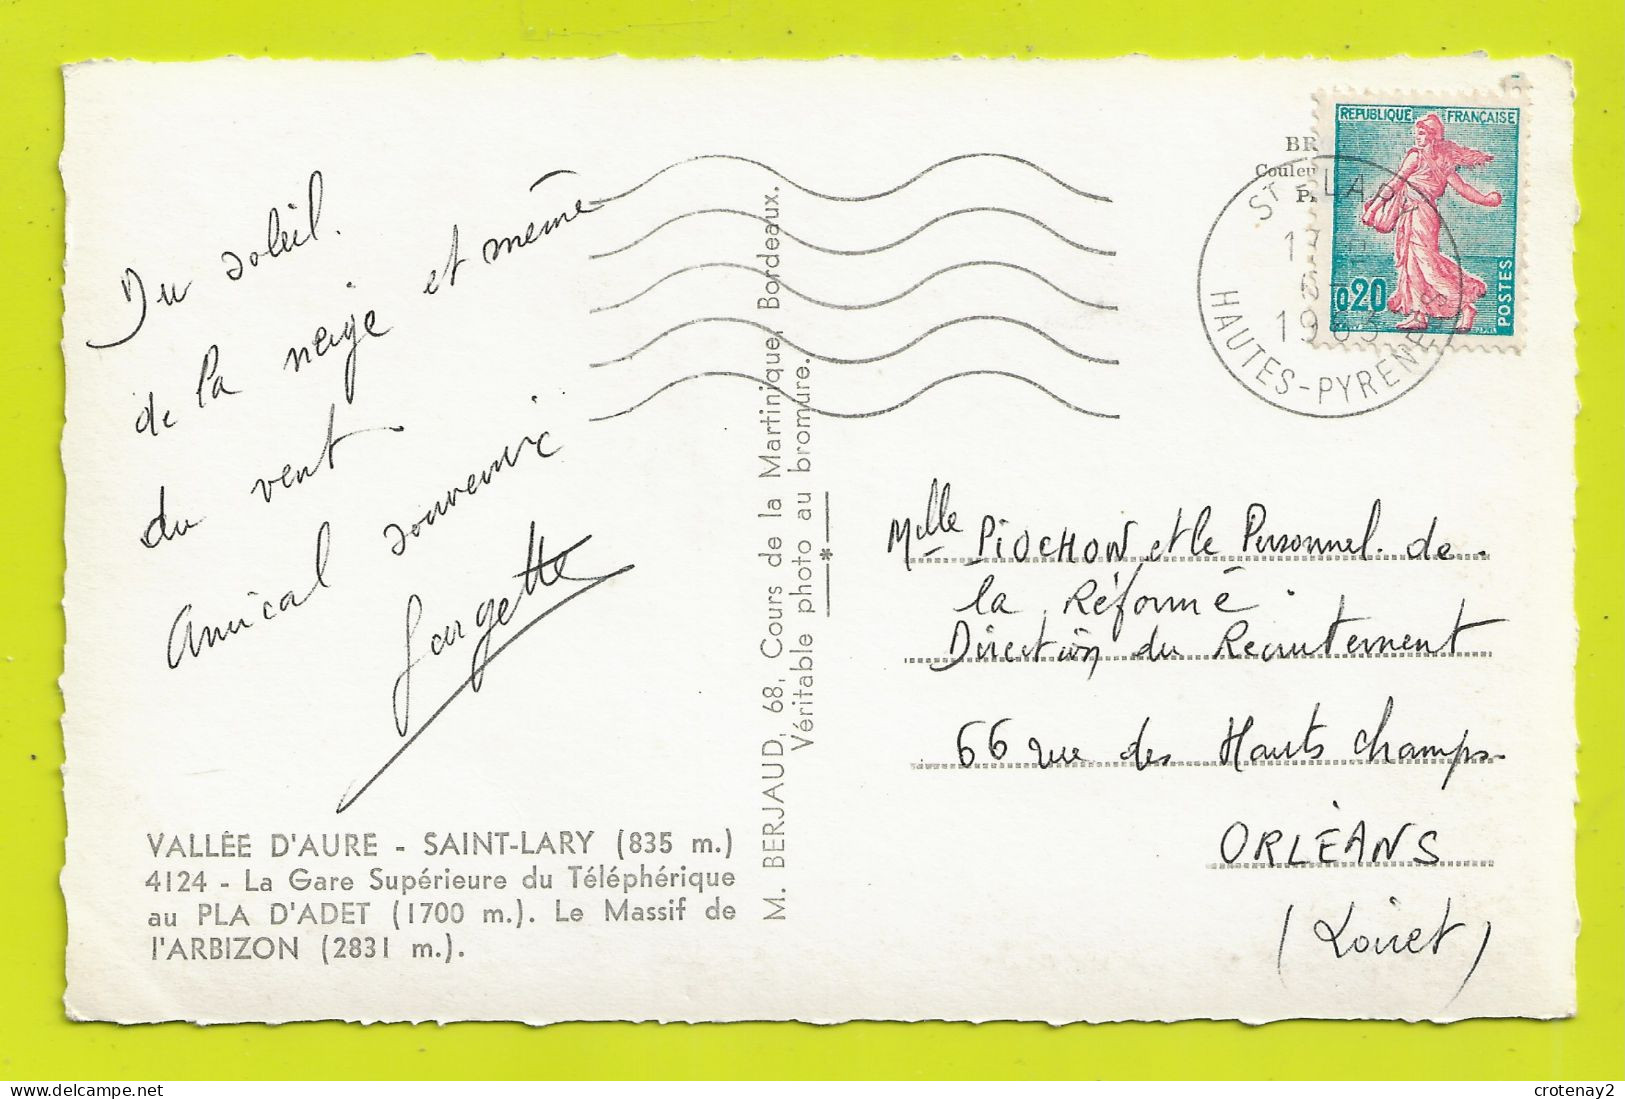 Du soleil.
de la neige et même
du vent
Amical souvenir
Georgette
VALLÉE D'AURE - SAINT-LARY (835 m.)
4124 - La Gare Supérieure du Téléphérique
au PLA D'ADET (1700 m.). Le Massif de
l'ARBIZON (2831 m.).
M. BERJAUD, 68, Cours de la Martinique, Bordeaux.
Véritable photo au bromure.
*
BR
Couleu
REPUBLIQUE FRANÇAISE
0,20
POSTES
ST LARY
1963
HAUTES-PYRENEES
Mlle PIOCHON et le Personnel de
la Réforme.
Direction du Recrutement
66 rue des Hauts Champs
ORLÉANS
(Loiret)
crotenay2